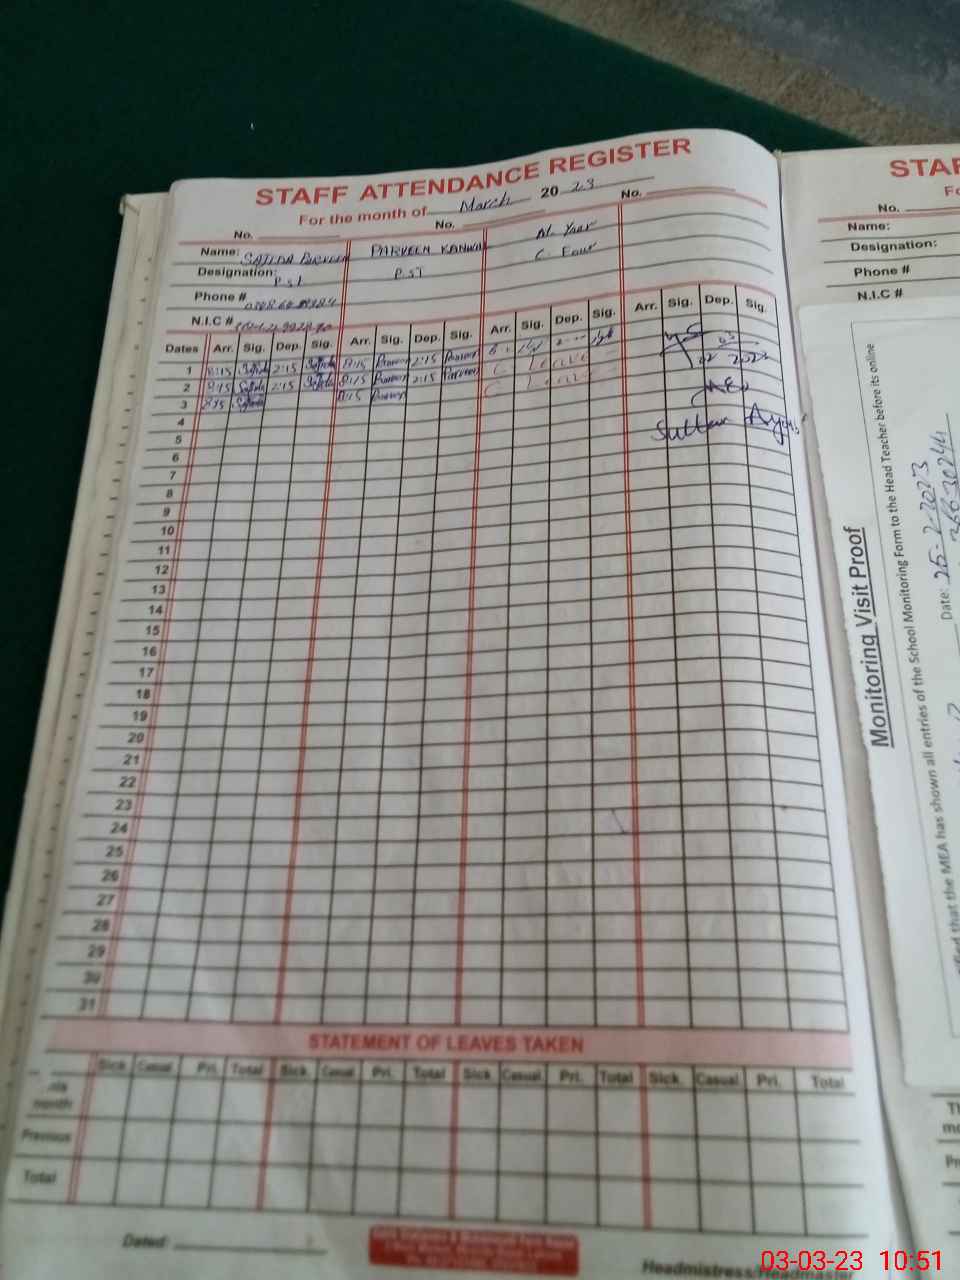 STAFF ATTENDANCE REGISTER
For the month of March 20 23
No. No. No.
Name: SAJIDA PARVEEN PARVEEN KANWAL
Designation: Pst PST
Phone #
N.I.C #
Dates Arr. Sig. Dep. Sig. Arr. Sig. Dep. Sig. Arr. Sig. Dep. Sig. Arr. Sig. Dep. Sig.
1 8:15 Sajida 2:15 Sajida 8:15 Parveen 2:15 Parveen
2 8:15 Sajida 2:15 Sajida 8:15 Parveen 2:15 Parveen C. Leave
3 8:15 Sajida 8:15 Parveen C. Leave
4
5
6
7
8
9
10
11
12
13
14
15
16
17
18
19
20
21
22
23
24
25
26
27
28
29
30
31
STATEMENT OF LEAVES TAKEN
Sick Casual Pri. Total Sick Casual Pri. Total Sick Casual Pri. Total Sick Casual Pri. Total
month
Previous
Total
Dated:
Headmistress/Headmaster
STAF
No.
Name:
Designation:
Phone #
N.I.C #
Monitoring Visit Proof
that the MEA has shown all entries of the School Monitoring Form to the Head Teacher before its online
Date: 25-2-2023
03-03-23 10:51